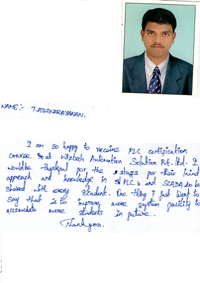 NAME:-
I am so happy to receive PLC certification
course at Automation Solution Pvt. Ltd. I
would be thankful for the for their kind
approach and knowledge in PLC's and SCADA to be
shared with every student. One thing I just want to
say that is to improve more system facility to
accomodate more students in future.
Thank you.